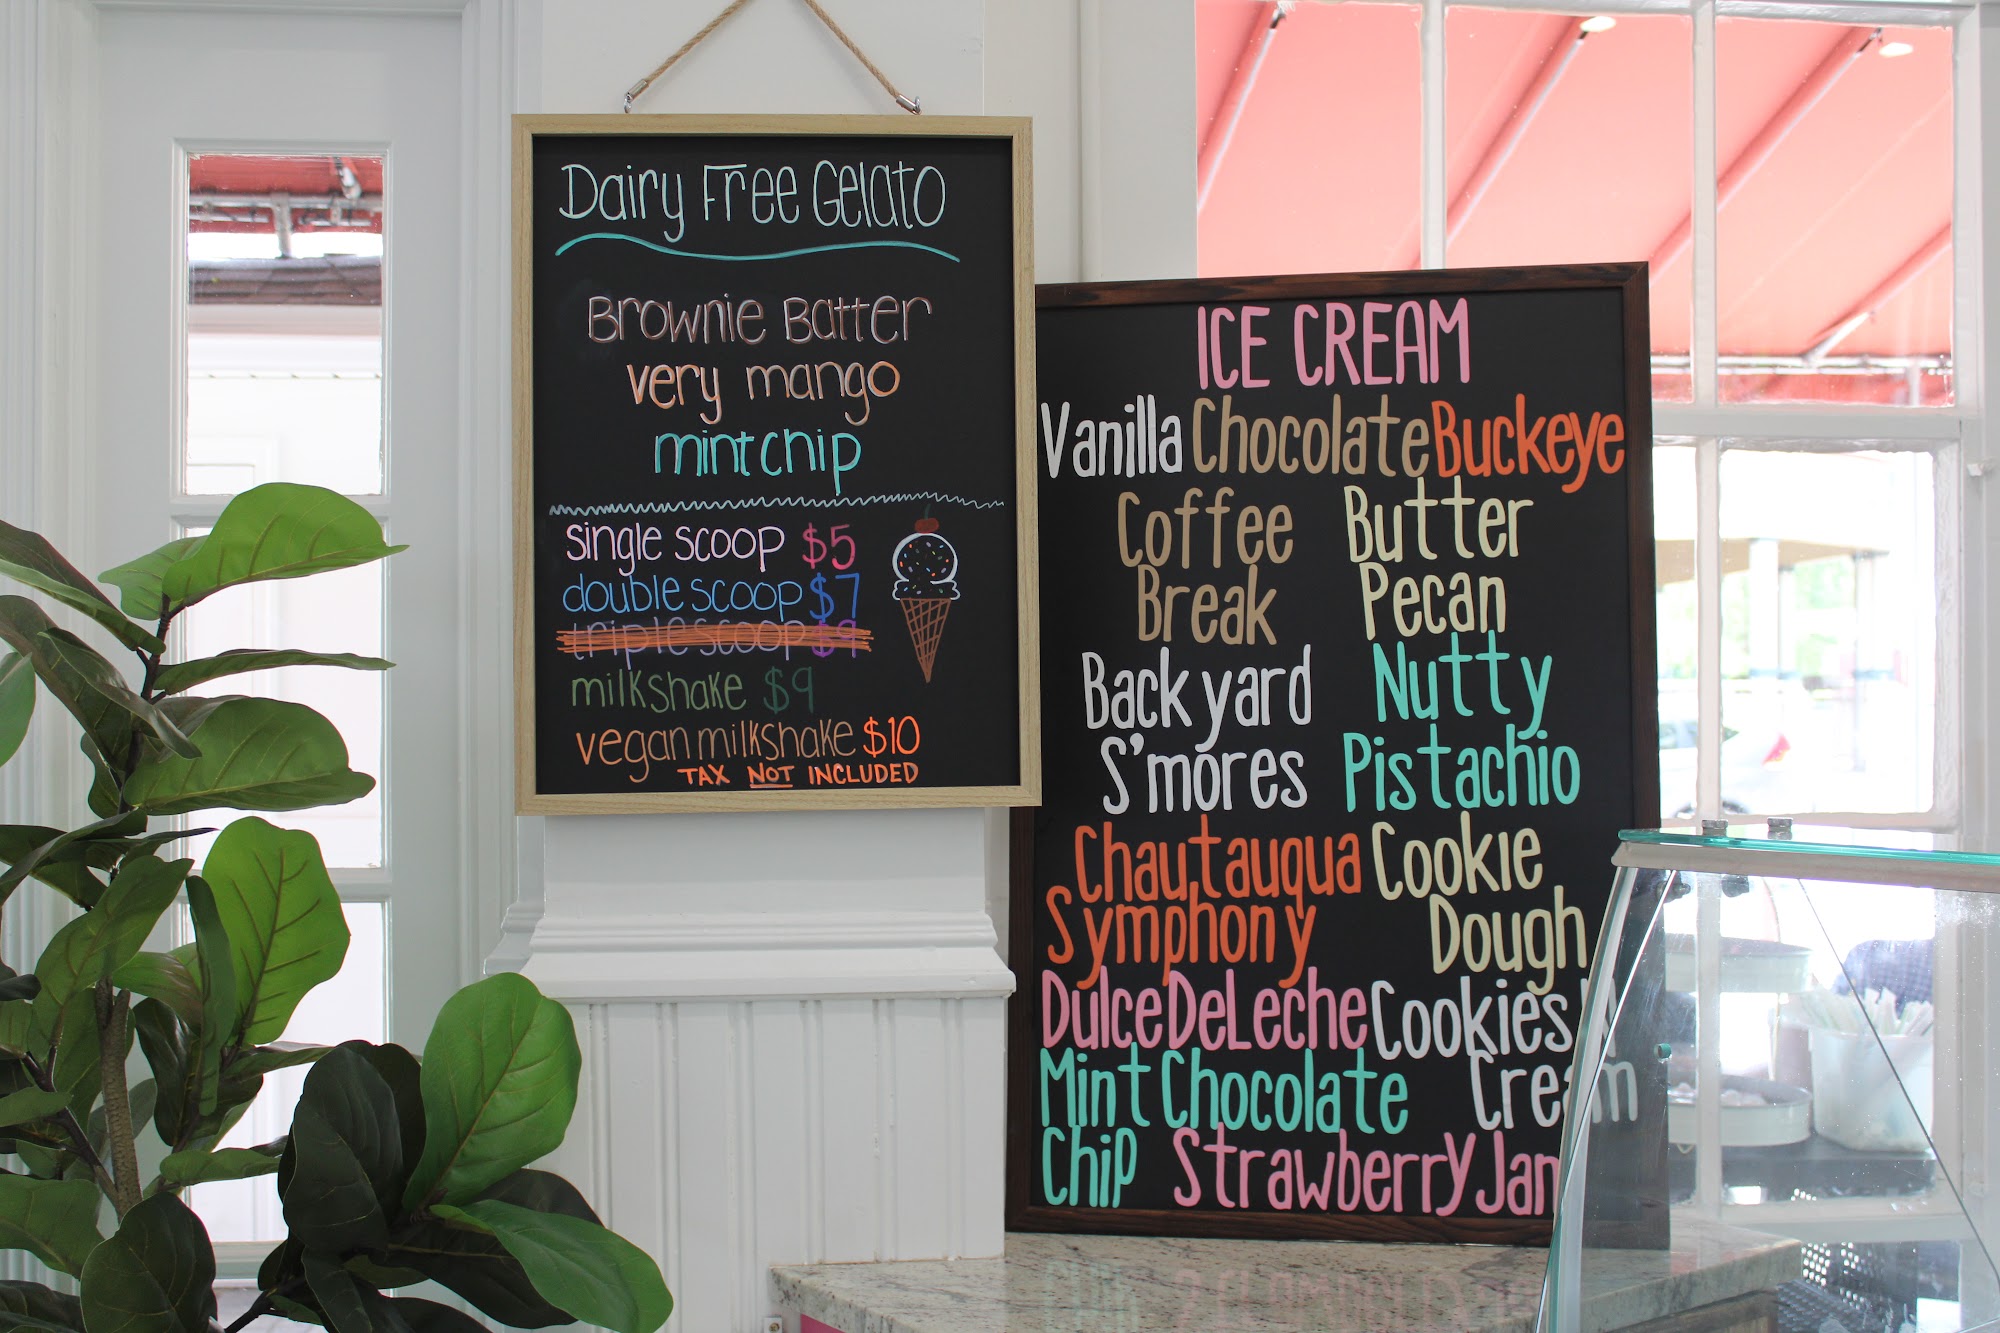 Dairy Free Gelato
Brownie Batter
very mango
mint chip
single scoop $5
double scoop $7
triple scoop $9
milkshake $9
vegan milkshake $10
TAX NOT INCLUDED
ICE CREAM
Vanilla Chocolate Buckeye
Coffee Break
Butter Pecan
Backyard S'mores
Nutty Pistachio
Chautauqua Symphony
Cookie Dough
Dulce De Leche
Cookies n Cream
Mint Chocolate Chip
Strawberry Jam